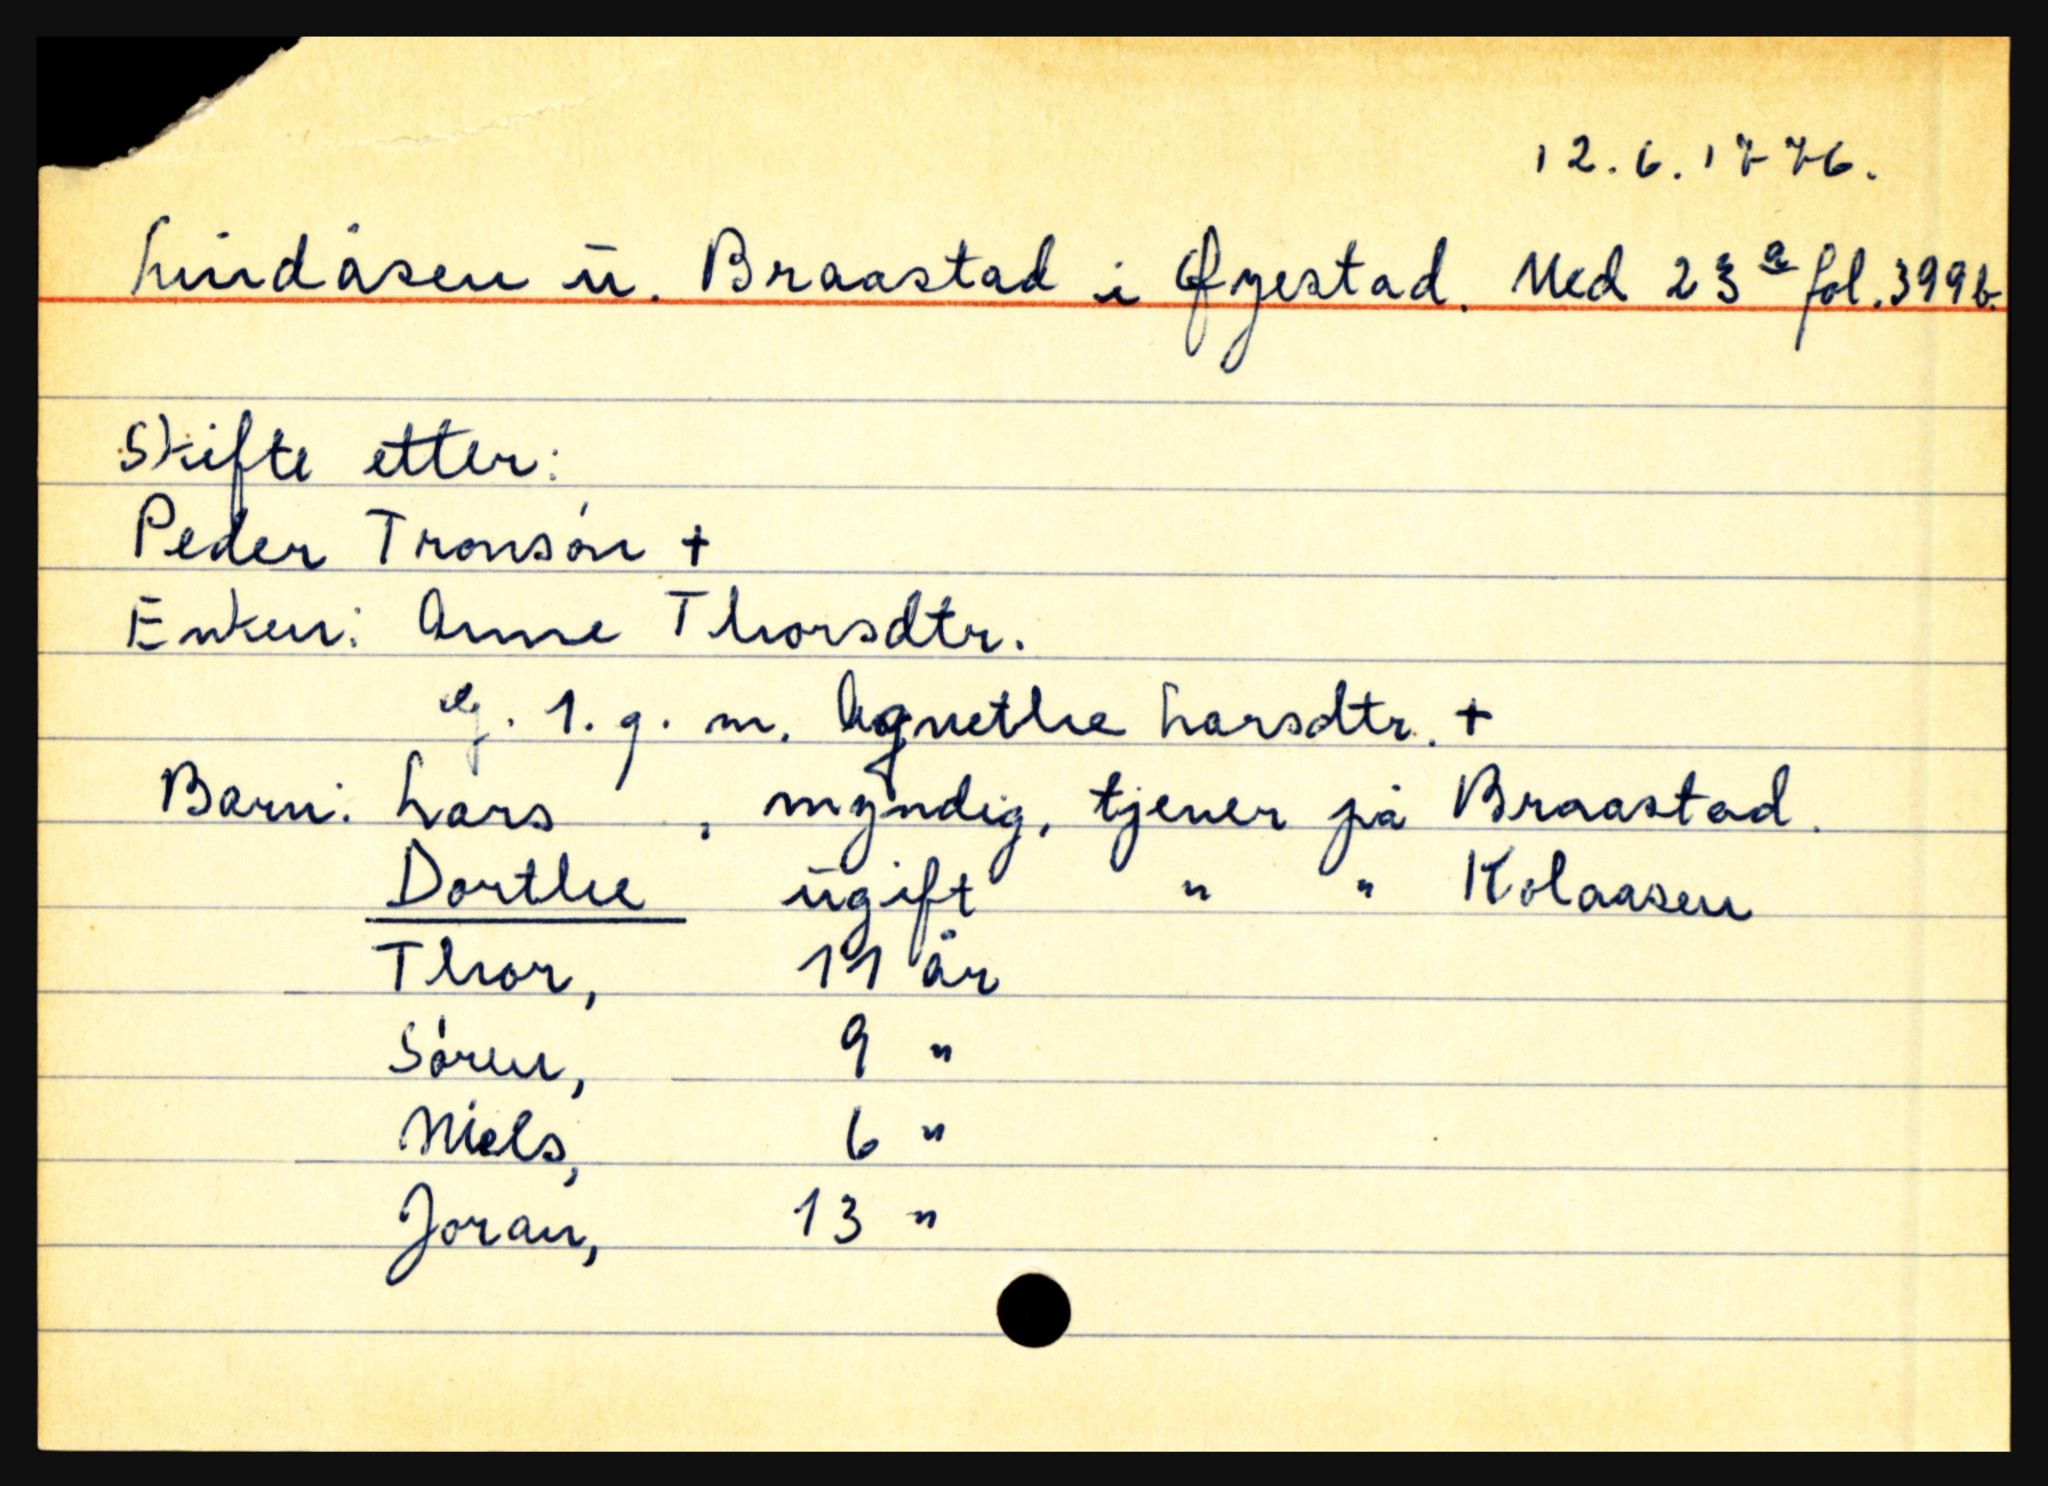 12.6.1776.
Lindåsen u. Braastad i Øyestad. Ned 23a fol. 399b.
Skifte etter:
Peder Tronsøn +
Enken: Anne Thorsdtr.
g. 1. g. m. Agnethe Larsdtr. +
Barn: Lars , myndig, tjener på Braastad.
Dorthe ugift " " Kolaasen
Thor, 11 år
Søren, 9 "
Niels, 6 "
Joran, 13 "